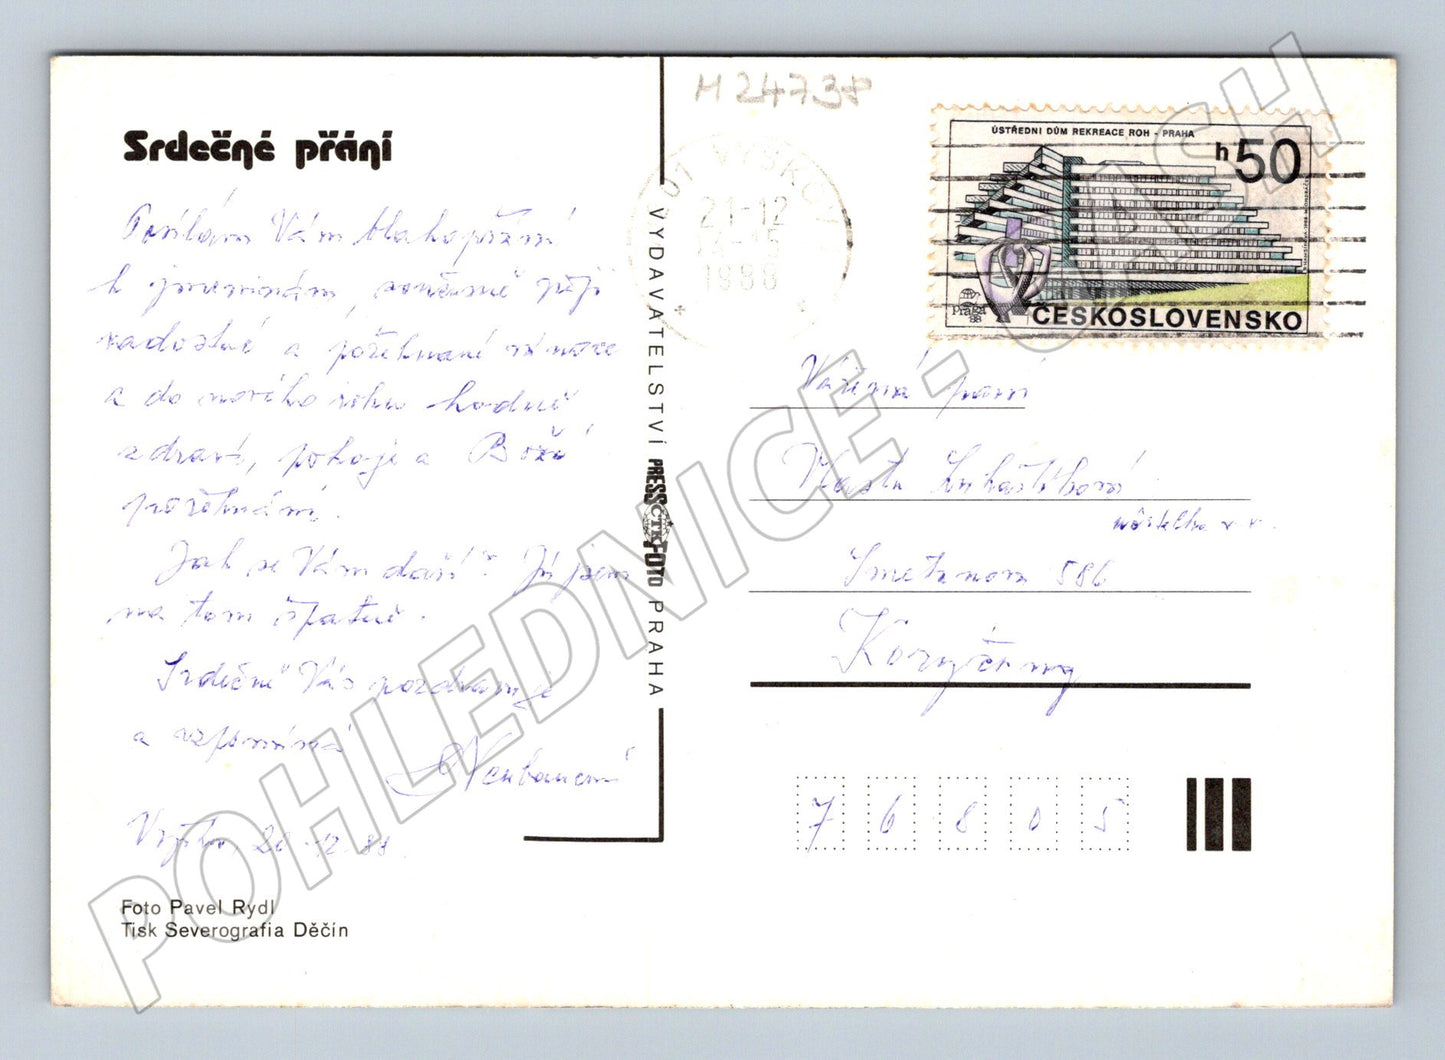 Srdečné přání
Posílám Vám blahopřání
k jmeninám, současně přeji
radostné a požehnané vánoce
a do nového roku hodně
zdraví, pokoje a Boží
požehnání.
Jak se Vám daří? Já jsem
na tom špatně.
Srdečně Vás pozdravuje
a vzpomíná
20.12.88
Foto Pavel Rydl
Tisk Severografia Děčín
VYDAVATELSTVÍ PRESSFOTO PRAHA
ČTK
M24738
VYŠKOV
21-12
1988
ÚSTŘEDNÍ DŮM REKREACE ROH - PRAHA
h50
Praga
88
ČESKOSLOVENSKO
Vážená paní
Vlasta
Smetanova 586
Koryčany
76805
POHLEDNICE - CASH